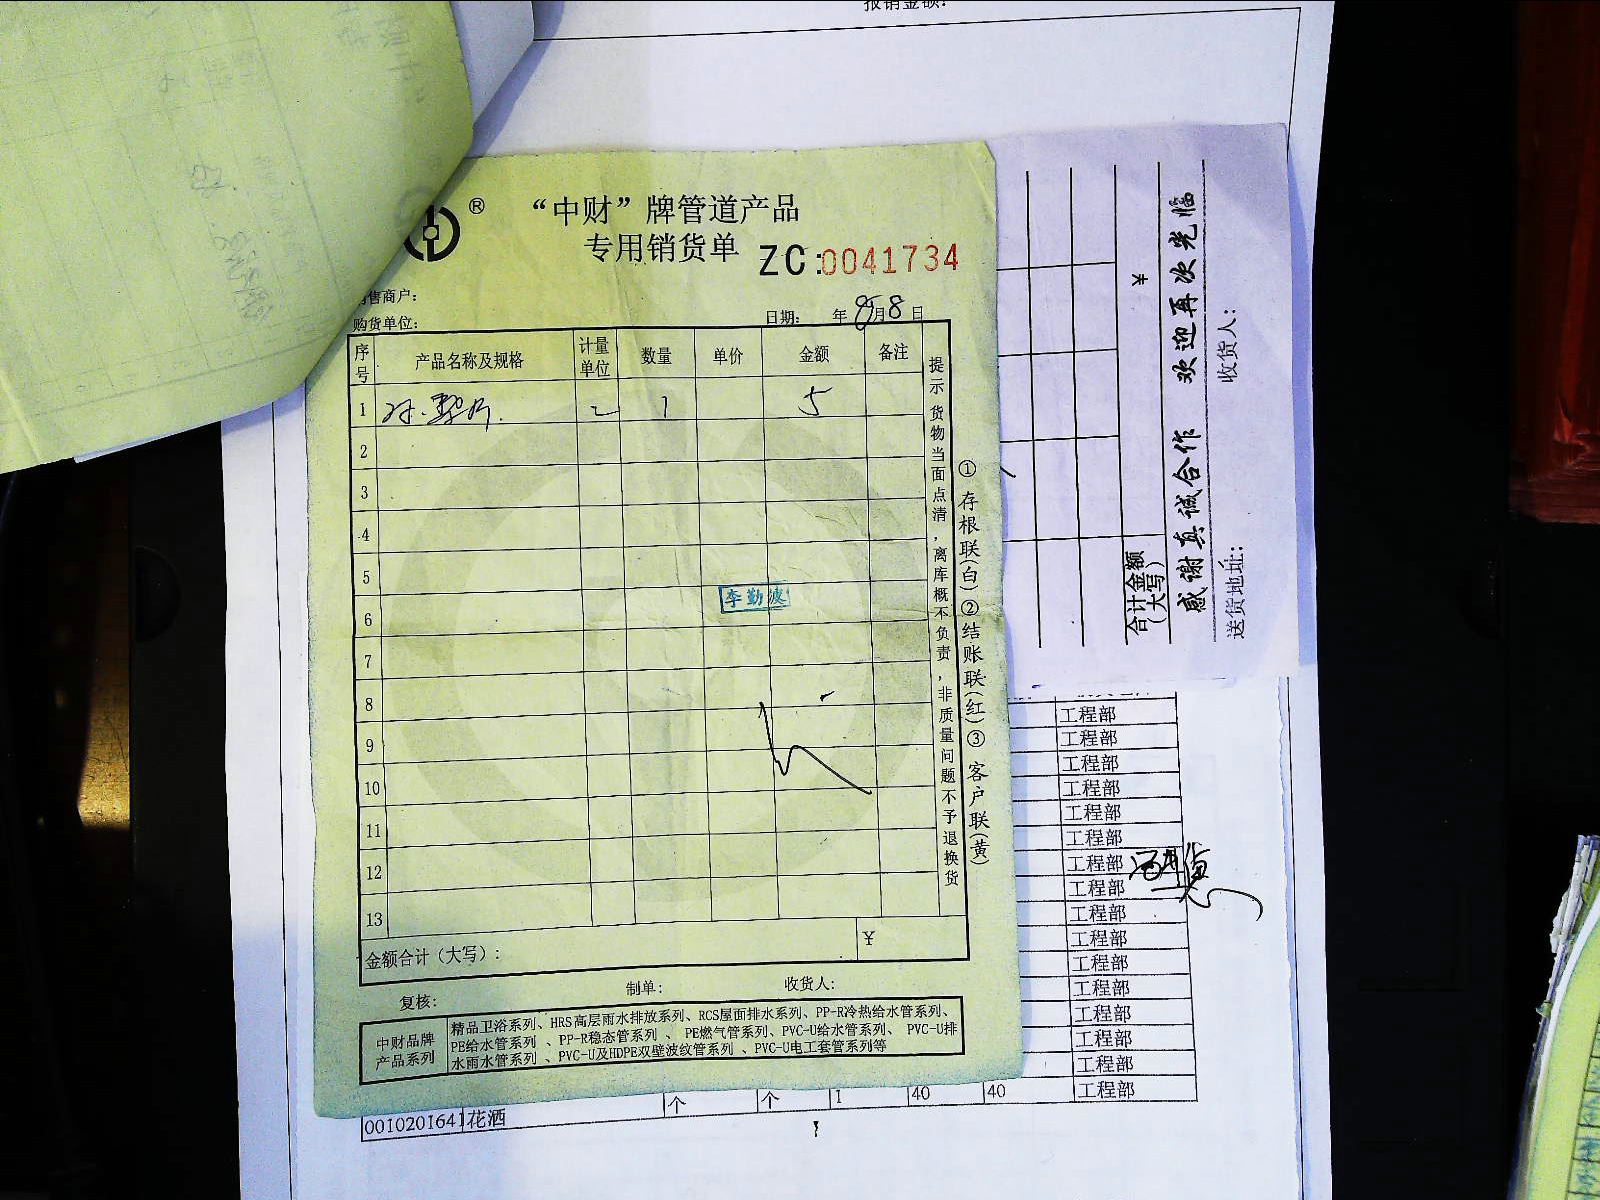 报销金额:
®
“中财”牌管道产品
专用销货单 ZC:0041734
售商户:
购货单位:
日期: 年 8月8日
序号 产品名称及规格 计量单位 数量 单价 金额 备注
1 1 5
2
3
4
5
6
7
8
9
10
11
12
13
李勤波
金额合计(大写): ¥
复核: 制单: 收货人:
中财品牌产品系列
精品卫浴系列、HRS高层雨水排放系列、RCS屋面排水系列、PP-R冷热给水管系列、
PE给水管系列 、PP-R稳态管系列 、 PE燃气管系列、PVC-U给水管系列、 PVC-U排
水雨水管系列 、PVC-U及HDPE双壁波纹管系列 、PVC-U电工套管系列等
提示 货物当面点清,离库概不负责,非质量问题不予退换货
① 存根联(白) ②结账联(红) ③ 客户联(黄)
合计金额(大写) ¥
感谢真诚合作 欢迎再次光临
送货地址: 收货人:
工程部
工程部
工程部
工程部
工程部
工程部
工程部
工程部
工程部
工程部
工程部
工程部
工程部
工程部
工程部
工程部
0010201641 花洒 个 个 1 40 40